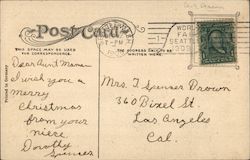 Post Card
THIS SPACE MAY BE USED
FOR CORRESPONDENCE.
THE ADDRESS ONLY TO BE
WRITTEN HERE.
WORLD'S
FAIR
SEATTLE
1909
Printed in Germany
Dear Aunt Mame
I wish you a
merry
Christmas
from your
niece
Dorothy
Spencer
Mrs. T. Spencer Drown
360 Bixel St.
Los Angeles
Cal.